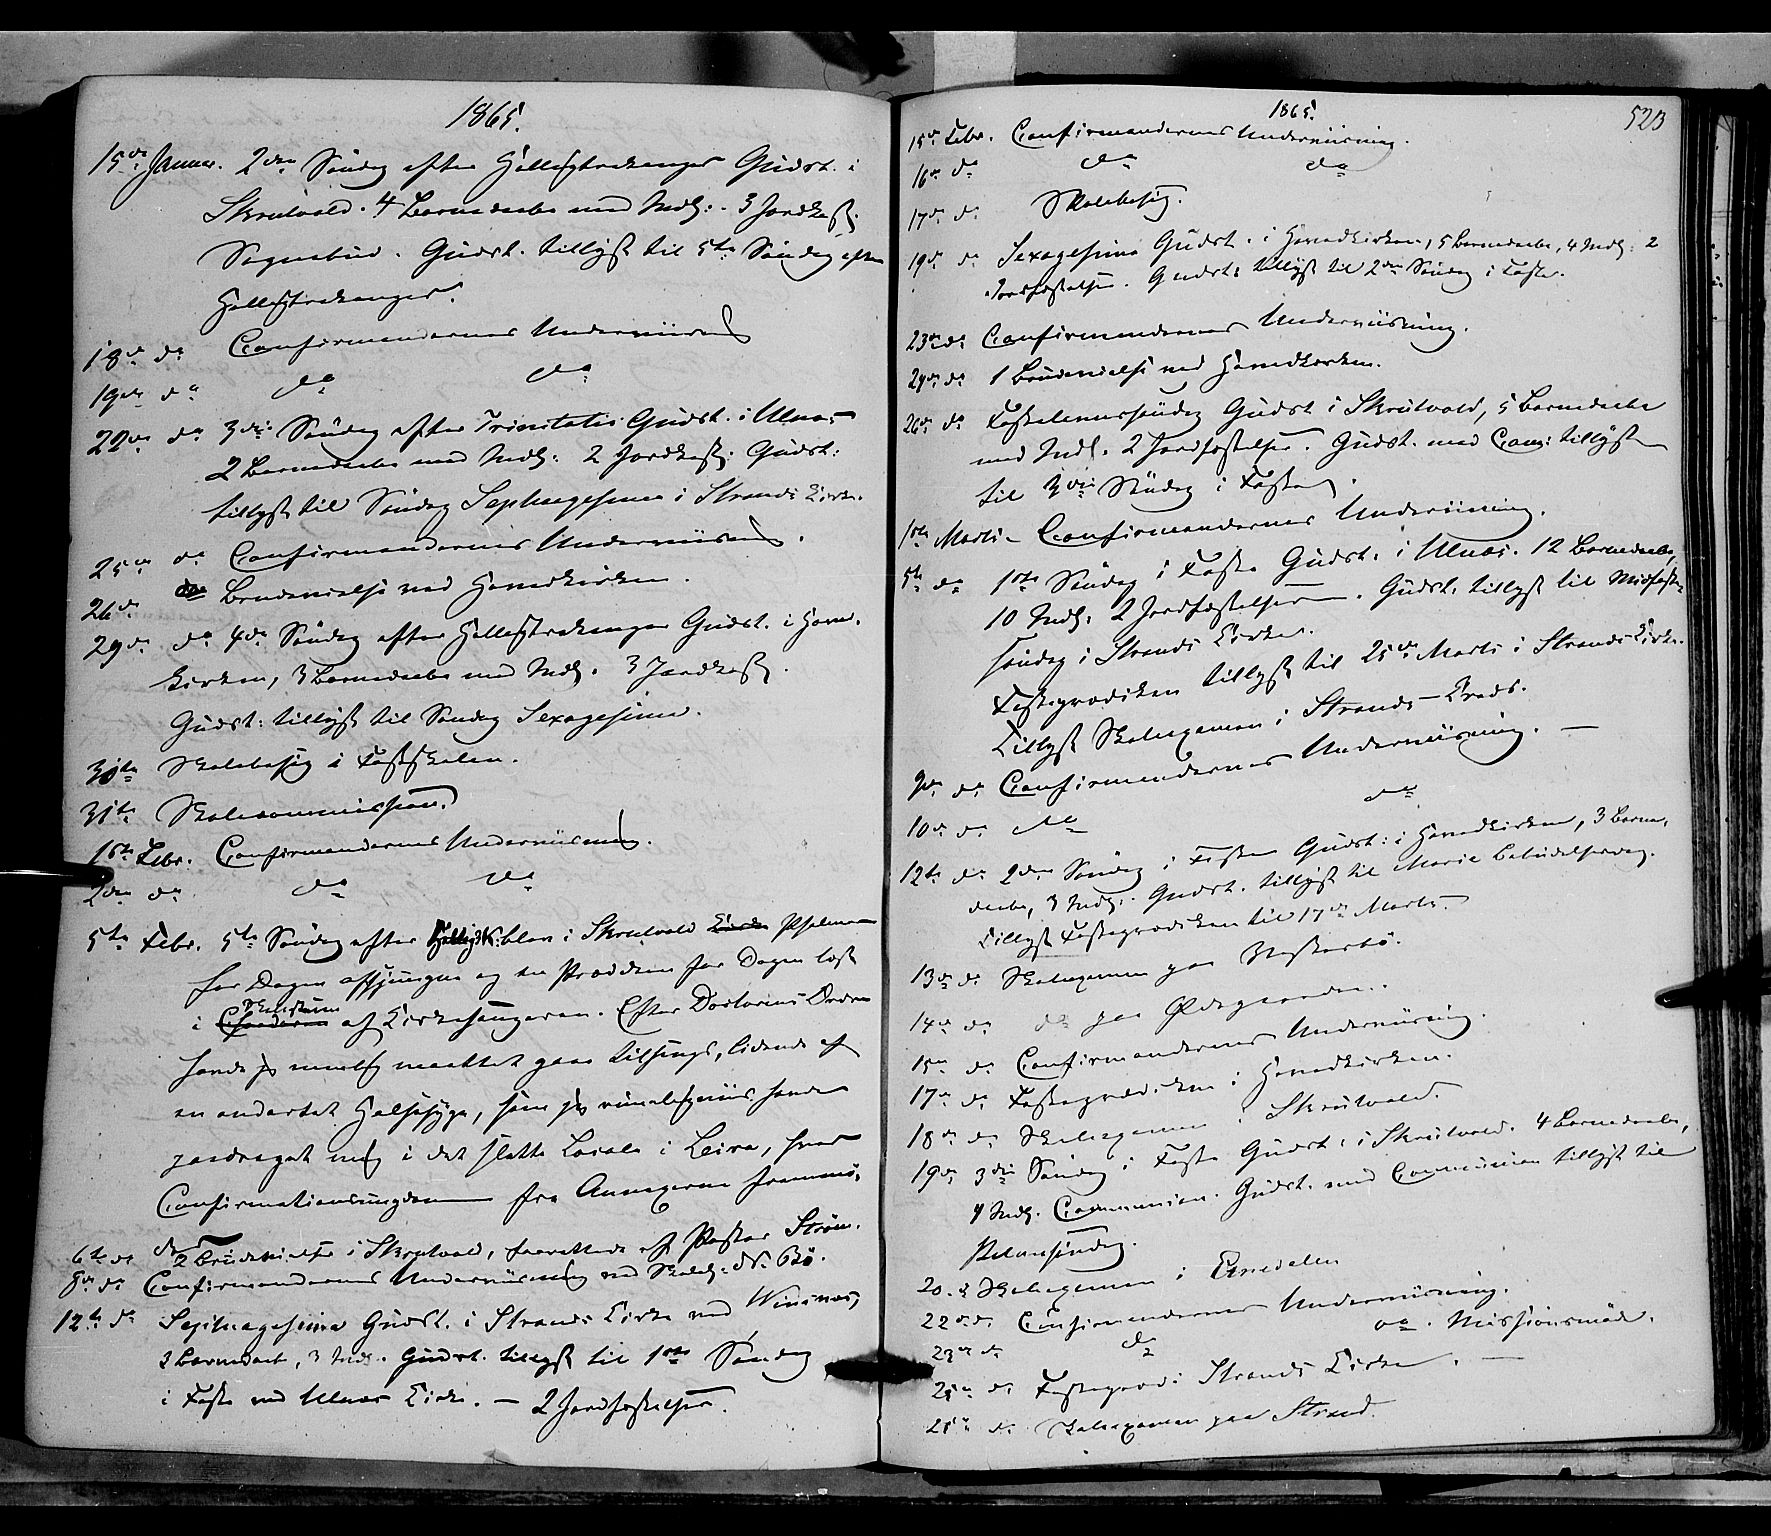 1865.
15de Januar. 2den Søndag efter Hellig3kongers Gudst. i
Skrutvold. 4 Barnedaab med Indl: 3 Jordkast.
Sognebud. Gudst. tillyst til 5te Søndag efter
Hellig3konger.
18de do Confirmandernes Underviisning
19de do do do
22de do 3die Søndag efter Trinitatis Gudst. i Ulnæs
2 Barnedaab med Indl: 2 Jordkast: Gudst:
tillyst til Søndag Septuagesima i Strands Kirke.
25de do Confirmandernes Underviisning.
26de Brudevielse ved Hovedkirken.
29de do 4de Søndag efter Hellig3konger Gudst. i Hoved-
kirken, 3 Barnedaab med Indl. 3 Jordkast.
Gudst: tillyst til Søndag Sexagesima.
30te Skolebesøg i Fastskolen.
31te Skolecommission.
1ste Febr. Confirmandernes Underviisning.
2den do do do
5te Febr. 5te Søndag efter Hellig3K. blev i Skrutvold Kirke Psalmerne
for Dagen afsjungne og en Prædiken for Dagen læst
i Choredøren Skolestuen af Kirkesangeren. Efter Doctorens Ordre
havde jeg nemlig maattet gaae tilsengs, lidende af
en ondartet Halssyge, som jeg rimeligviis havde
paadraget mig i det slette Locale i Leira, hvor
Confirmationsungdommen fra Annexerne fremmø-
der
6te do 2 Brudevielser i Skrutvold, forrettede af Pastor Strøm.
8de do Confirmandernes Underviisning ved Skoleh. do Bø.
12te do Septuagesima Gudst. i Strands Kirke ved Winsnes,
2 Barnedaab, 3 Indl. Gudst. tillyst til 1ste Søndag
i Faste ved Ulnæs Kirke. — 2 Jordfæstelser.
1865.
523
15de Febr. Confirmandernes Underviisning.
16de do do do
17de do Skolebesøg.
19de do Sexagesima Gudst. i Hovedkirken, 5 Barnedaab, 4 Indl: 2
Jordfæstelser. Gudst: tillyst til 2den Søndag i Faste.
23de do Confirmandernes Underviisning.
24de do 1 Brudevielse ved Hovedkirken.
26de do Fastelavnssøndag Gudst i Skrutvold, 5 Barnedaab
med Indl. 2 Jordfæstelser. Gudst. med Com: tillyst
til 3die Søndag i Faste.
1ste Marts – Confirmandernes Underviisning.
5te do 1ste Søndag i Faste Gudst. i Ulnæs. 12 Barnedaab,
10 Indl. 2 Jordfæstelser. Gudst. tillyst til Midfaste-
søndag i Strands Kirke.
Fasteprædiken tillyst til 25de Marts i Strands Kirke.
Tillyst Skoleexamen i Strands–Kreds.
9de do Confirmandernes Underviisning. —
10de do do do
12te do 2den Søndag i Faste Gudst: i Hovedkirken, 3 Barne-
daab, 3 Indl. Gudst. tillyst til Mariæ Bebudelsesdag.
Tillyst Fasteprædiken til 17de Marts.
13de do Skoleexamen paa
14de do do paa Ødegaarden.
15de do Confirmandernes Underviisning.
17de do Fasteprædiken i Hovedkirken.
18de do Skoleexamen i Skrutvold.
19de 3die Søndag i Faste Gudst: i Skrutvold. 4 Barnedaab,
4 Indl. Communion. Gudst. med Communion tillyst til
Palmesøndag.
20. d Skoleexamen i
22de do Confirmandernes Underviisning.
23de do do do. Missionsmøde.
25de do Fastepræd: Strands Kirke. —
28de do Skoleexamen paa Strand.